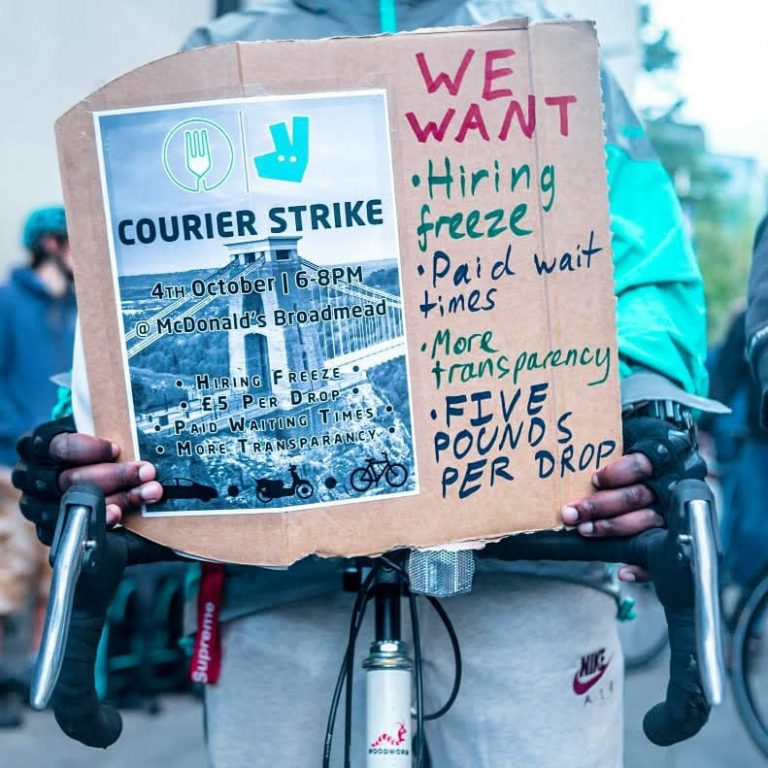 COURIER STRIKE
4TH OCTOBER | 6-8PM
@ MCDONALD'S BROADMEAD
• HIRING FREEZE •
• £5 PER DROP •
• PAID WAITING TIMES •
• MORE TRANSPARANCY •
WE
WANT
• Hiring
freeze
• Paid wait
times
• More
transparency
• FIVE
POUNDS
PER DROP
Supreme
NIKE
AIR
WOODWORM